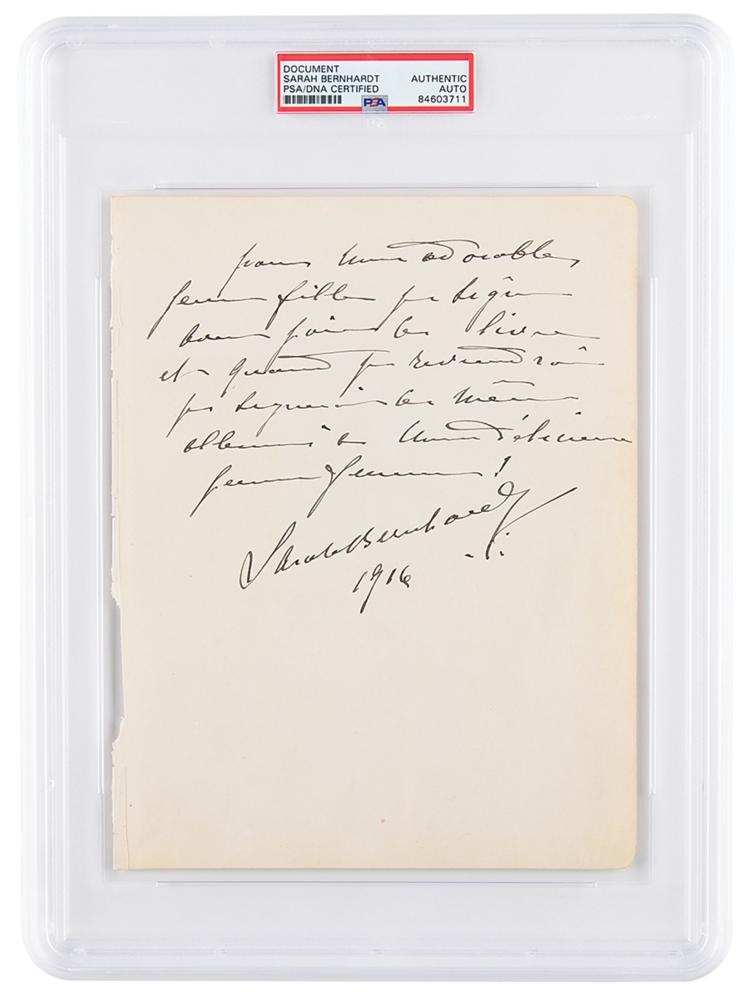 DOCUMENT
SARAH BERNHARDT
PSA/DNA CERTIFIED
AUTHENTIC
AUTO
84603711
PSA
pour une adorable
jeune fille je signe
livre
et quand je reviendrai
je signerai les même
album à une délicieuse
jeune femme!
Sarah Bernhardt
1916